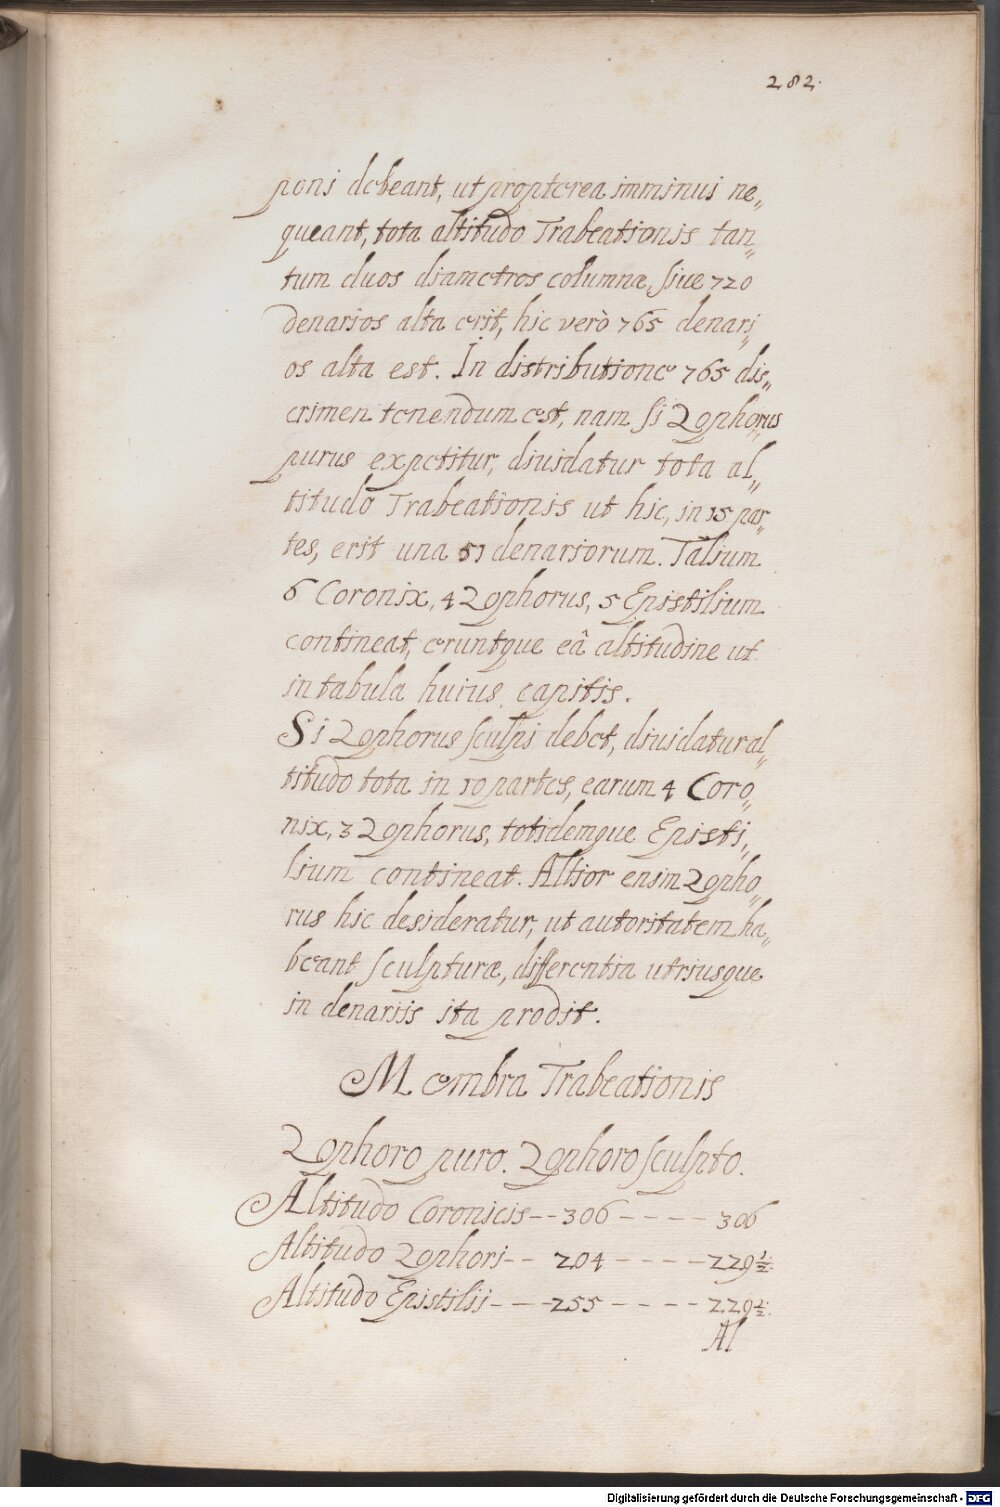 282.
poni debeant, ut propterea imminui ne„
queant, tota altitudo Trabeationis tan„
tum duos diametros columnæ, siue 720
denarios alta erit, hic verò 765 denari„
os alta est. In distributione 765 dis„
crimen tenendum est, nam si Zophorus
purus expetitur, diuidatur tota al„
titudo Trabeationis ut hic, in 15 par„
tes, erit una 51 denariorum. Talium
6 Coronix, 4 Zophorus, 5 Epistilium
contineat, eruntque eâ altitudine ut
in tabula huius capitis.
Si Zophorus sculpi debet, diuidatur al„
titudo tota in 10 partes, earum 4 Coro„
nix, 3 Zophorus, totidemque Episti„
lium contineat. Altior enim Zopho„
rus hic desideratur, ut autoritatem ha„
beant sculpturæ, differentia utriusque
in denariis ita prodit.
Membra Trabeationis
Zophoro puro. Zophoro sculpto.
Altitudo Coronicis -- 306 ---- 306
Altitudo Zophori -- 204 ---- 229 1/2.
Altitudo Epistilii --- 255 ---- 229 1/2.
Al
Digitalisierung gefördert durch die Deutsche Forschungsgemeinschaft - DFG